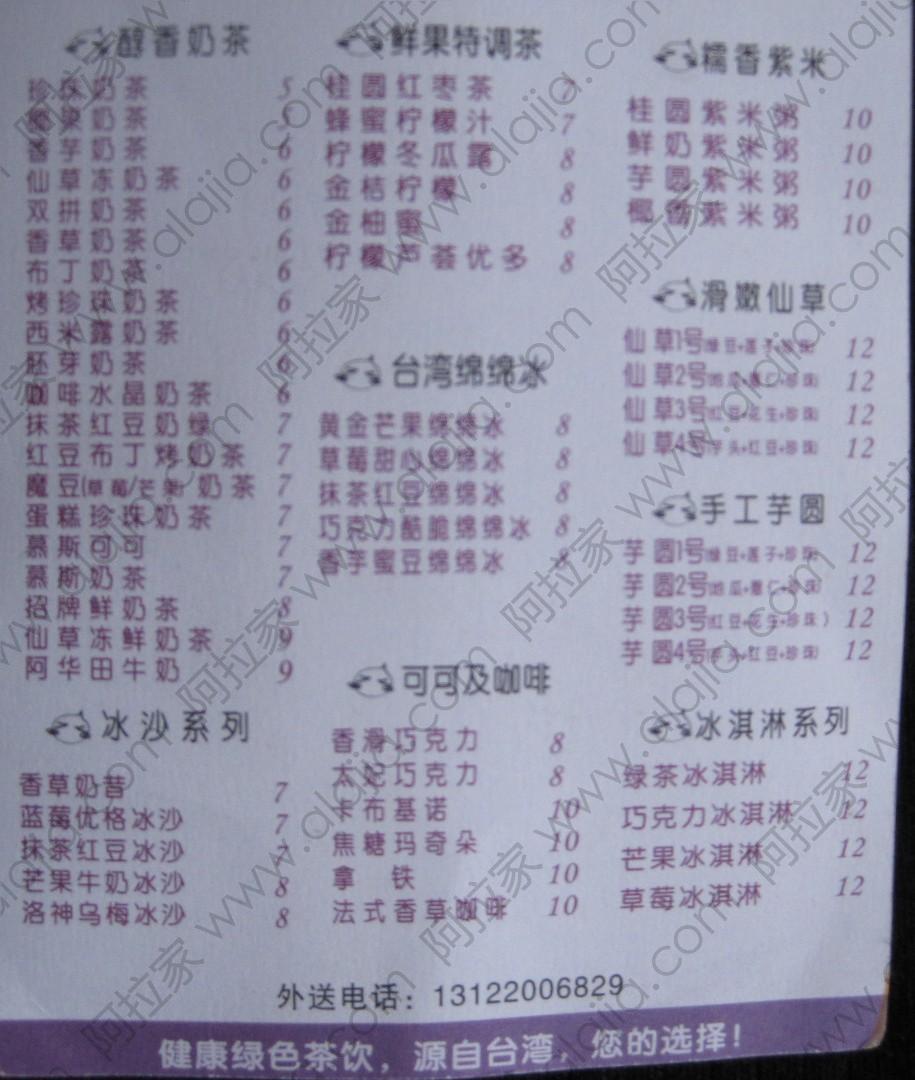 醇香奶茶
珍珠奶茶 5
椰果奶茶 5
香芋奶茶 6
仙草冻奶茶 6
双拼奶茶 6
香草奶茶 6
布丁奶茶 6
烤珍珠奶茶 6
西米露奶茶 6
胚芽奶茶 6
咖啡水晶奶茶 6
抹茶红豆奶绿 7
红豆布丁烤奶茶 7
魔豆(草莓/芒果)奶茶 7
蛋糕珍珠奶茶 7
慕斯可可 7
慕斯奶茶 7
招牌鲜奶茶 8
仙草冻鲜奶茶 9
阿华田牛奶 9
冰沙系列
香草奶昔 7
蓝莓优格冰沙 7
抹茶红豆冰沙 7
芒果牛奶冰沙 8
洛神乌梅冰沙 8
鲜果特调茶
桂圆红枣茶 7
蜂蜜柠檬汁 7
柠檬冬瓜露 8
金桔柠檬 8
金柚蜜 8
柠檬芦荟优多 8
台湾绵绵冰
黄金芒果绵绵冰 8
草莓甜心绵绵冰 8
抹茶红豆绵绵冰 8
巧克力酷脆绵绵冰 8
香芋蜜豆绵绵冰 8
可可及咖啡
香滑巧克力 8
太妃巧克力 8
卡布基诺 10
焦糖玛奇朵 10
拿铁 10
法式香草咖啡 10
糯香紫米
桂圆紫米粥 10
鲜奶紫米粥 10
芋圆紫米粥 10
椰香紫米粥 10
滑嫩仙草
仙草1号(绿豆+莲子+珍珠) 12
仙草2号(地瓜+薏仁+珍珠) 12
仙草3号(红豆+花生+珍珠) 12
仙草4号(芋头+红豆+珍珠) 12
手工芋圆
芋圆1号(绿豆+莲子+珍珠) 12
芋圆2号(地瓜+薏仁+珍珠) 12
芋圆3号(红豆+花生+珍珠) 12
芋圆4号(芋头+红豆+珍珠) 12
冰淇淋系列
绿茶冰淇淋 12
巧克力冰淇淋 12
芒果冰淇淋 12
草莓冰淇淋 12
外送电话：13122006829
健康绿色茶饮，源自台湾，您的选择！
阿拉家 www.alajia.com